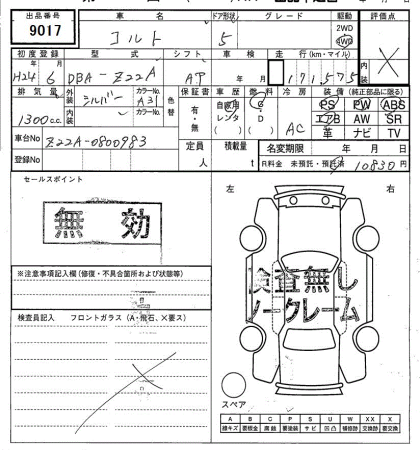 出品番号 車名 ドア形状 グレード 駆動 評価点
9017 コルト 5 2WD 4WD ×
初度登録 型式 シフト 車検 走行(km・マイル)
H24 6 DBA-Z22A AT 年 月 171,575
排気量 外装 カラーNo. 色替 保証書 車歴 燃料 冷房 装備(純正部品に限る)
1300cc シルバー A31 有・無 自家用 レンタ G・D AC PS PW ABS
内装 カラーNo. エアB AW SR
車台No Z22A-0800983 定員 積載量 革 ナビ TV
登録No 人 t 名変期限 年 月 日
R料金 未預託・預託済 10830円
セールスポイント
無効
左 右
※注意事項記入欄(修復・不具合箇所および状態等)
検査無し
ノークレーム
検査員記入 フロントガラス(A・飛石、X要ス)
スペア
A B C P S U W X XX
線キズ 要板金 腐蝕 要塗装 サビ 凹凸 補修跡 交換跡 要交換